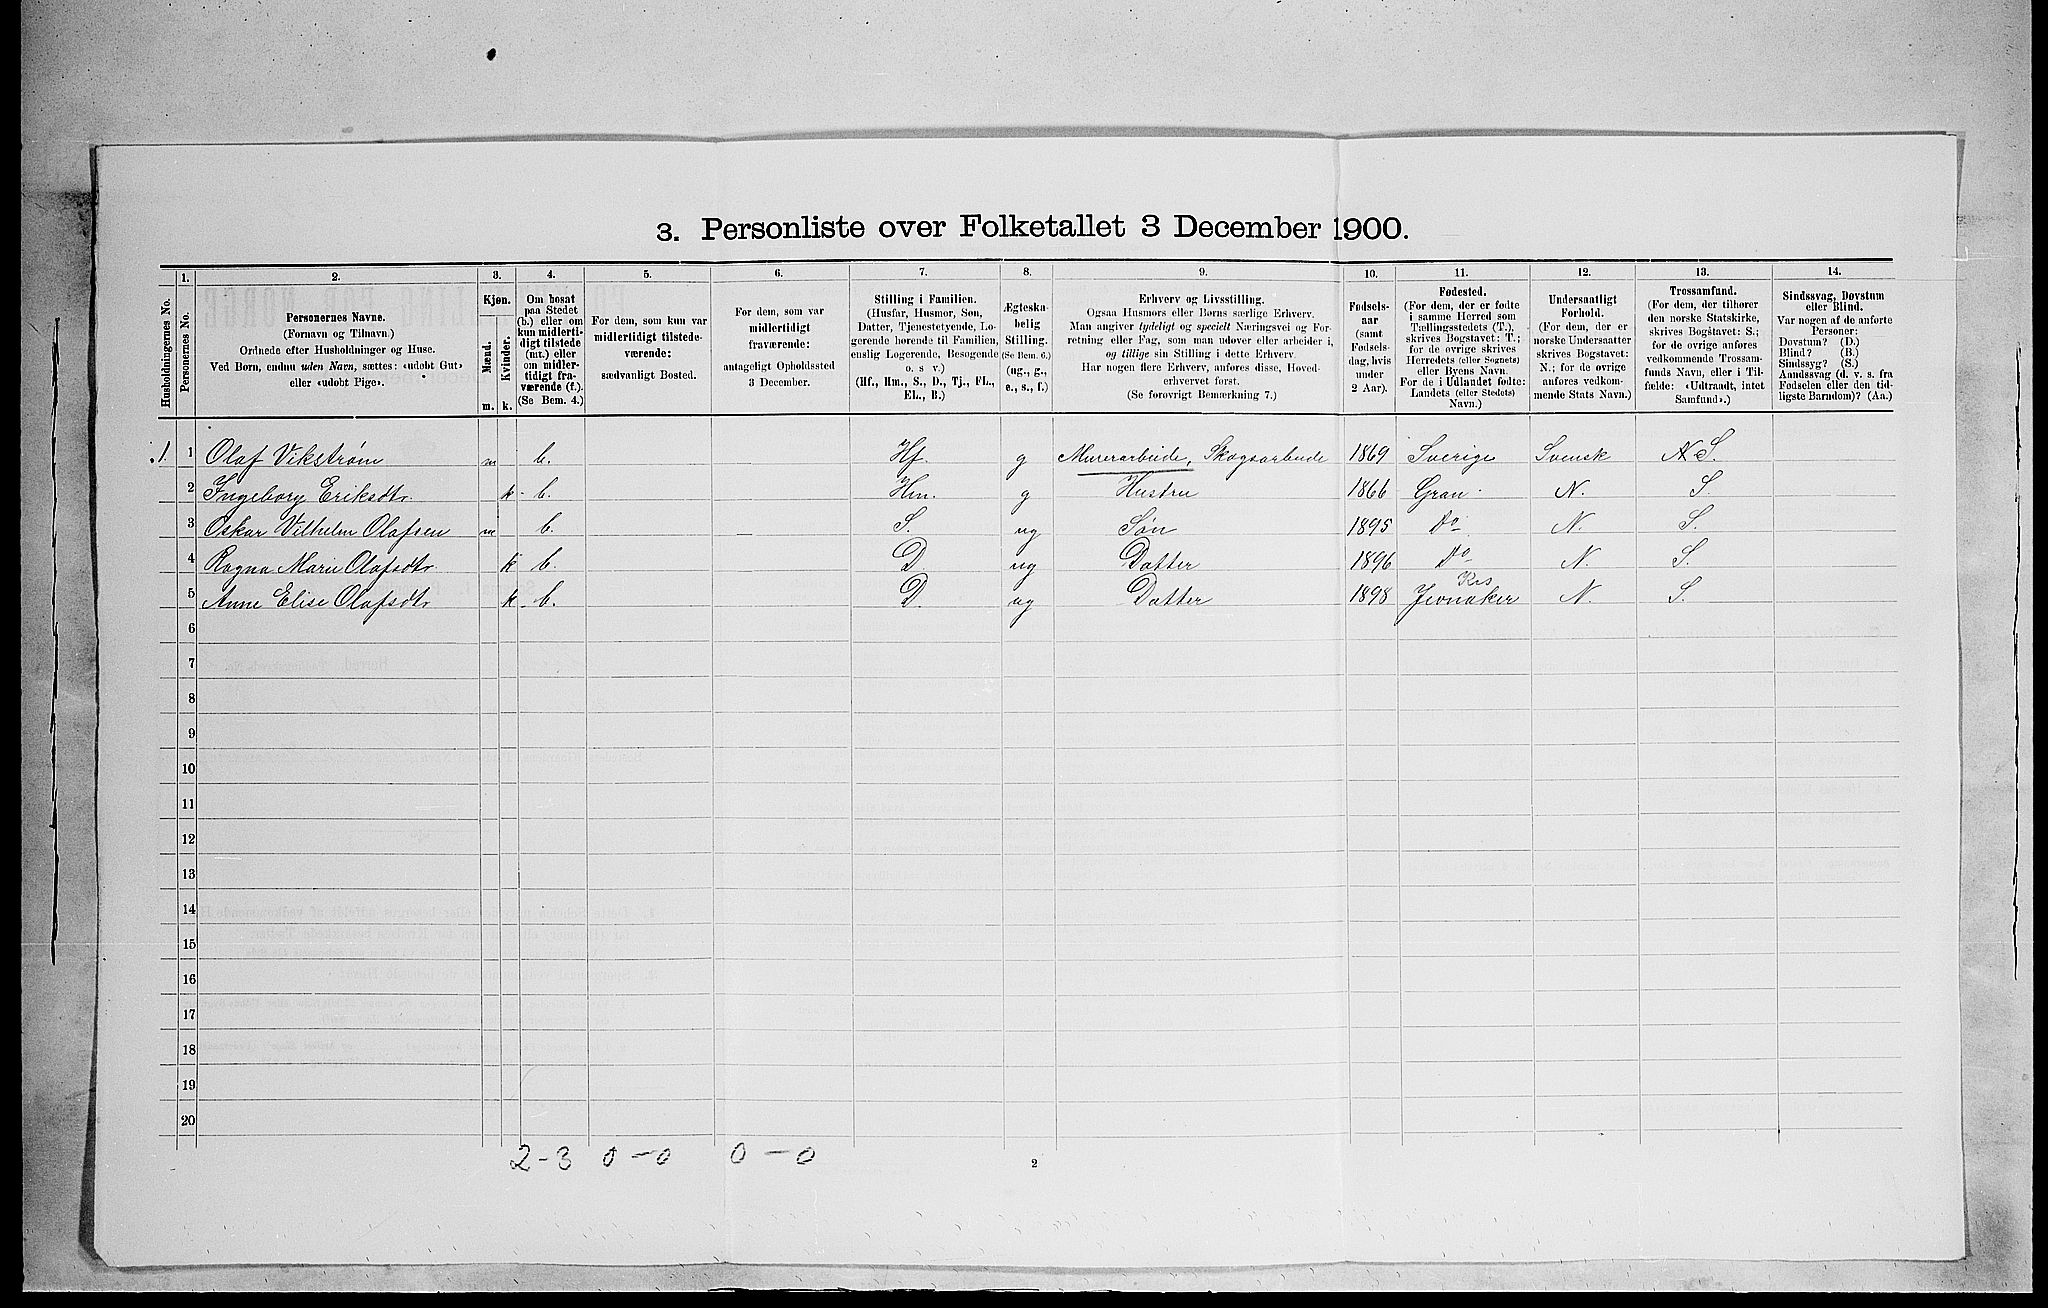 3. Personliste over Folketallet 3 December 1900.
Husholdningernes No.
1.
Personernes No.
2.
Personernes Navne.
(Fornavn og Tilnavn.)
Ordnede efter Husholdninger og Huse.
Ved Børn, endnu uden Navn, sættes: «udøbt Gut»
eller «udøbt Pige».
3.
Kjøn.
Mænd.
Kvinder.
m. k.
4.
Om bosat
paa Stedet
(b.) eller om
kun midlerti-
digt tilstede
(mt.) eller
om midler-
tidigt fra-
værende (f.).
(Se Bem. 4.)
5.
For dem, som kun var
midlertidigt tilstede-
værende:
sædvanligt Bosted.
6.
For dem, som var
midlertidigt
fraværende:
antageligt Opholdssted
3 December.
7.
Stilling i Familien.
(Husfar, Husmor, Søn,
Datter, Tjenestetyende, Lo-
gerende hørende til Familien,
enslig Logerende, Besøgende
o. s. v.)
(Hf., Hm., S., D., Tj., FL.,
EL., B.)
8.
Ægteska-
belig
Stilling.
(Se Bem. 6.)
(ug., g.,
e., s., f.)
9.
Erhverv og Livsstilling.
Ogsaa Husmors eller Børns særlige Erhverv.
Man angiver tydeligt og specielt Næringsvei og For-
retning eller Fag, som man udøver eller arbeider i,
og tillige sin Stilling i dette Erhverv.
Har nogen flere Erhverv, anføres disse, Hoved-
erhvervet først.
(Se forøvrigt Bemærkning 7.)
10.
Fødsels-
aar
(samt
Fødsels-
dag, hvis
under
2 Aar).
11.
Fødested.
(For dem, der er fødte
i samme Herred som
Tællingsstedets (T.),
skrives Bogstavet: T.;
for de øvrige skrives
Herredets (eller Sognets)
eller Byens Navn.
For de i Udlandet fødte:
Landets (eller Stedets)
Navn.)
12.
Undersaatligt
Forhold.
(For dem, der er
norske Undersaatter
skrives Bogstavet:
N.; for de øvrige
anføres vedkom-
mende Stats Navn.)
13.
Trossamfund.
(For dem, der tilhører
den norske Statskirke,
skrives Bogstavet: S.;
for de øvrige anføres
vedkommende Trossam-
funds Navn, eller i Til-
fælde: «Udtraadt, intet
Samfund».)
14.
Sindssvag, Døvstum
eller Blind.
Var nogen af de anførte
Personer:
Døvstum? (D.)
Blind? (B.)
Sindssyg? (S.)
Aandssvag (d. v. s. fra
Fødselen eller den tid-
ligste Barndom)? (Aa.)
1. 1 Olaf Vikstrøm m b. Hf. g Murerarbeide, Skogsarbeide 1869 Sverige Svensk N S.
2 Ingeborg Eriksdtr. k. b. Hm. g Hustru 1866 Gran. N. S.
3 Oskar Vilhelm Olafsen m b. S. ug Søn 1895 Do N. S.
4 Ragna Marie Olafsdtr. k b. D. ug Datter 1896 Do N. S.
5 Anne Elise Olafsdtr k. b. D. ug Datter 1898 Jevnaker N. S.
6
7
8
9
10
11
12
13
14
15
16
17
18
19
20
2-3 0-0 0-0
2